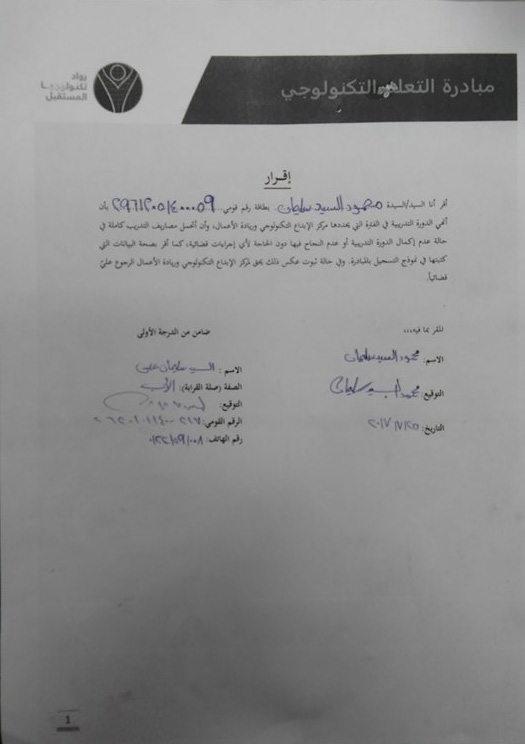 مبادرة التعلم التكنولوجي
رواد
تكنولوجيا
المستقبل
إقرار
أقر أنا السيد/السيدة محمود السيد سليمان بطاقة رقم قومي بأن
أنهي الدورة التدريبية في الفترة التي يحددها مركز الإبداع التكنولوجي وريادة الأعمال، وأن أتحمل مصاريف التدريب كاملة في
حالة عدم إكمال الدورة التدريبية أو عدم النجاح فيها دون الحاجة لأي إجراءات قضائية، كما أقر بصحة البيانات التي
كتبتها في نموذج التسجيل بالمبادرة. وفي حالة ثبوت عكس ذلك يحق لمركز الإبداع التكنولوجي وريادة الأعمال الرجوع عليّ
قضائياً.
المقر بما فيه،،،
الاسم: محمود السيد سليمان
التوقيع: محمود السيد سليمان
التاريخ:
ضامن من الدرجة الأولى
الاسم: السيد سليمان
الصفة (صلة القرابة): الأب
التوقيع:
الرقم القومي:
رقم الهاتف:
1